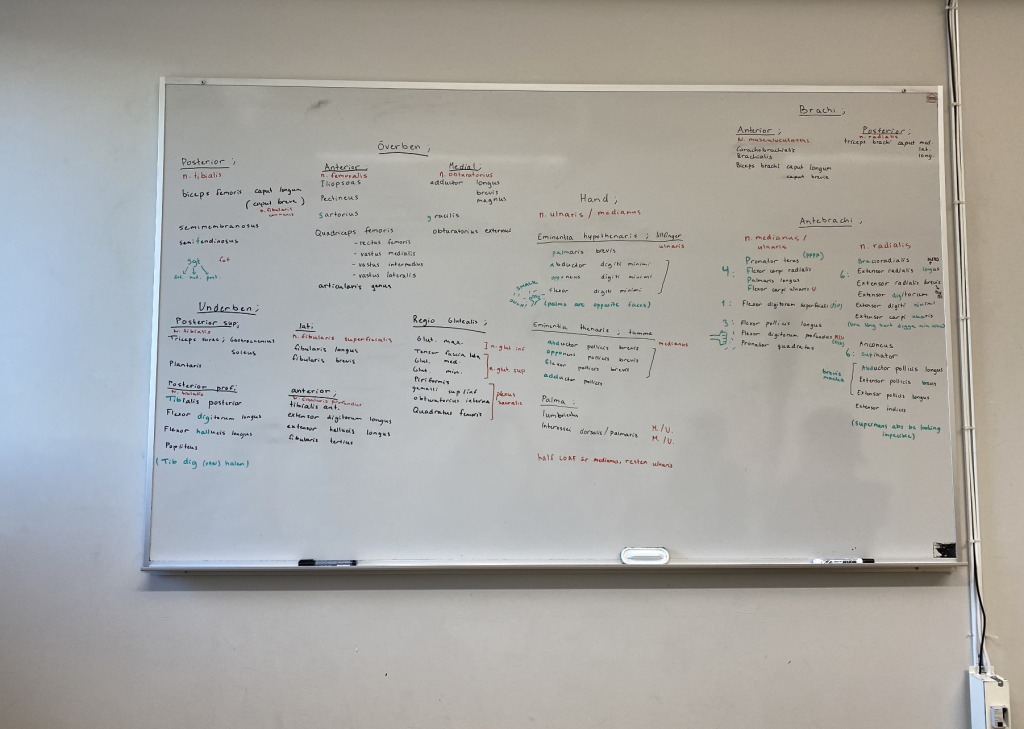 Överben;
Posterior;
n. tibialis
biceps femoris caput longum
(caput breve)
n. fibularis communis
semimembranosus
semitendinosus
Anterior;
n. femoralis
Iliopsoas
Pectineus
Sartorius
Quadriceps femoris
- rectus femoris
- vastus medialis
- vastus intermedius
- vastus lateralis
articularis genus
Medial;
n. obturatorius
adductor longus
brevis
magnus
gracilis
obturatorius externus
Underben;
Posterior sup;
n. tibialis
Triceps surae; Gastrocnemius
Soleus
Plantaris
Posterior prof;
n. tibialis
Tibialis posterior
Flexor digitorum longus
Flexor hallucis longus
Popliteus
(Tib dig halen)
lat;
n. fibularis superficialis
fibularis longus
fibularis brevis
anterior;
tibialis ant.
extensor digitorum longus
extensor hallucis longus
fibularis tertius
Regio Glutealis;
Glut. max.
] n. glut inf
Tensor fascia lata
Glut. med.
Glut. min.
] n. glut. sup
Piriformis
gemelli sup/inf
obturatorius interna
Quadratus femoris
] plexus sacralis
Hand;
n. ulnaris / medianus
Eminentia hypothenaris; lillfinger
ulnaris
palmaris brevis
abductor digiti minimi
opponens digiti minimi
flexor digiti minimi
(palms are opposite faces)
Eminentia thenaris; tumme
medianus
abductor pollicis brevis
opponens pollicis brevis
flexor pollicis brevis
adductor pollicis
Palma:
lumbricales
Interossei dorsalis/palmaris M./U.
M./U.
half LOAF är medianus, resten ulnaris
Brachi;
Anterior;
n. musculocutaneus
Coracobrachialis
Brachialis
Biceps brachi caput longum
caput breve
Posterior;
n. radialis
triceps brachi caput med.
lat.
long.
Antebrachi;
n. medianus / ulnaris
4:
Pronator teres (PPPP)
Flexor carpi radialis
Palmaris longus
Flexor carpi ulnaris U
1: Flexor digitorum superficiali
3: Flexor pollicis longus
Flexor digitorum profundus M/U
Pronator quadratus
n. radialis
6:
Bracioradialis
Extensor radialis longus
Extensor radialis brevis
Extensor digitorum
Extensor digiti minimi
Extensor carpi ulnaris
Anconeus
6: supinator
Abductor pollicis longus
Extensor pollicis brevis
Extensor pollicis longus
Extensor indicis
(supermans abs be looking impecible)